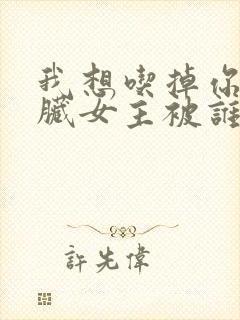 我想喫掉你
臟女主被誰
許先偉